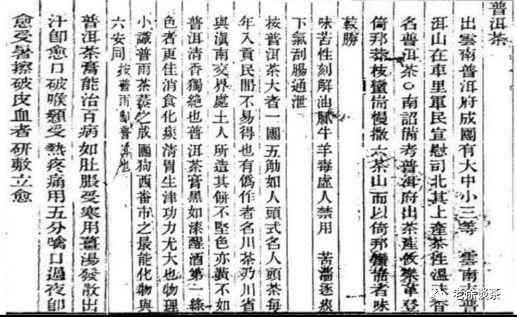 普洱茶
出雲南普洱府成團有大中小三等　雲南志普
洱山在車里軍民宣慰司北其上產茶性溫味香
名普洱茶○南詔備考普洱府出茶產攸樂革登
倚邦莽枝蠻耑慢撒六茶山而以倚邦蠻耑者味
較勝
味苦性刻解油膩牛羊毒虛人禁用　苦濇逐痰
下氣刮腸通泄
按普洱茶大者一團五觔如人頭式名人頭茶每
年入貢民間不易得也有偽作者名川茶乃川省
與滇南交界處土人所造其餅不堅色亦黃不如
普洱清香獨絕也普洱茶膏黑如漆醒酒第一綠
色者更佳消食化痰清胃生津功力尤大也物理
小識普雨茶蒸之成團狗西番市之最能化物與
六安同　按普雨即普洱也
普洱茶膏能治百病如肚脹受寒用薑湯發散出
汁即愈口破喉顙受熱疼痛用五分噙口過夜即
愈受暑擦破皮血者研敷立愈